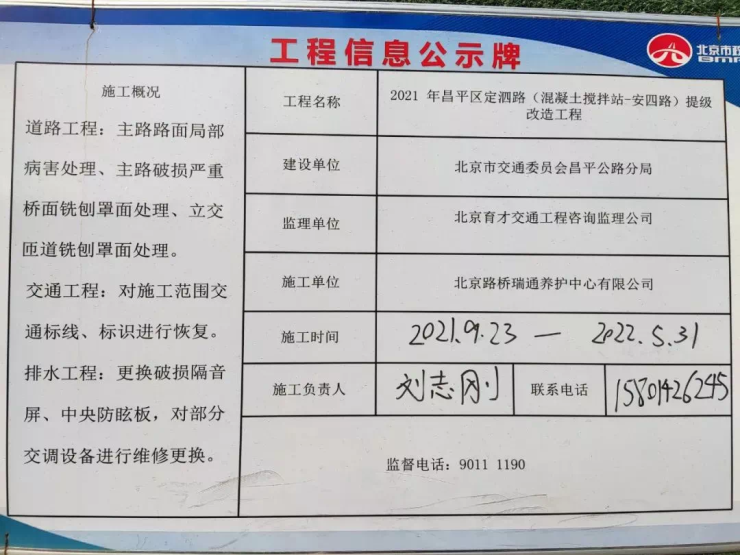 工程信息公示牌
北京市政
BMR
施工概况
道路工程：主路路面局部
病害处理、主路破损严重
桥面铣刨罩面处理、立交
匝道铣刨罩面处理。
交通工程：对施工范围交
通标线、标识进行恢复。
排水工程：更换破损隔音
屏、中央防眩板，对部分
交调设备进行维修更换。
工程名称
2021 年昌平区定泗路（混凝土搅拌站-安四路）提级
改造工程
建设单位
北京市交通委员会昌平公路分局
监理单位
北京育才交通工程咨询监理公司
施工单位
北京路桥瑞通养护中心有限公司
施工时间
2021.9.23 — 2022.5.31
施工负责人
刘志刚
联系电话
15801426245
监督电话：9011 1190